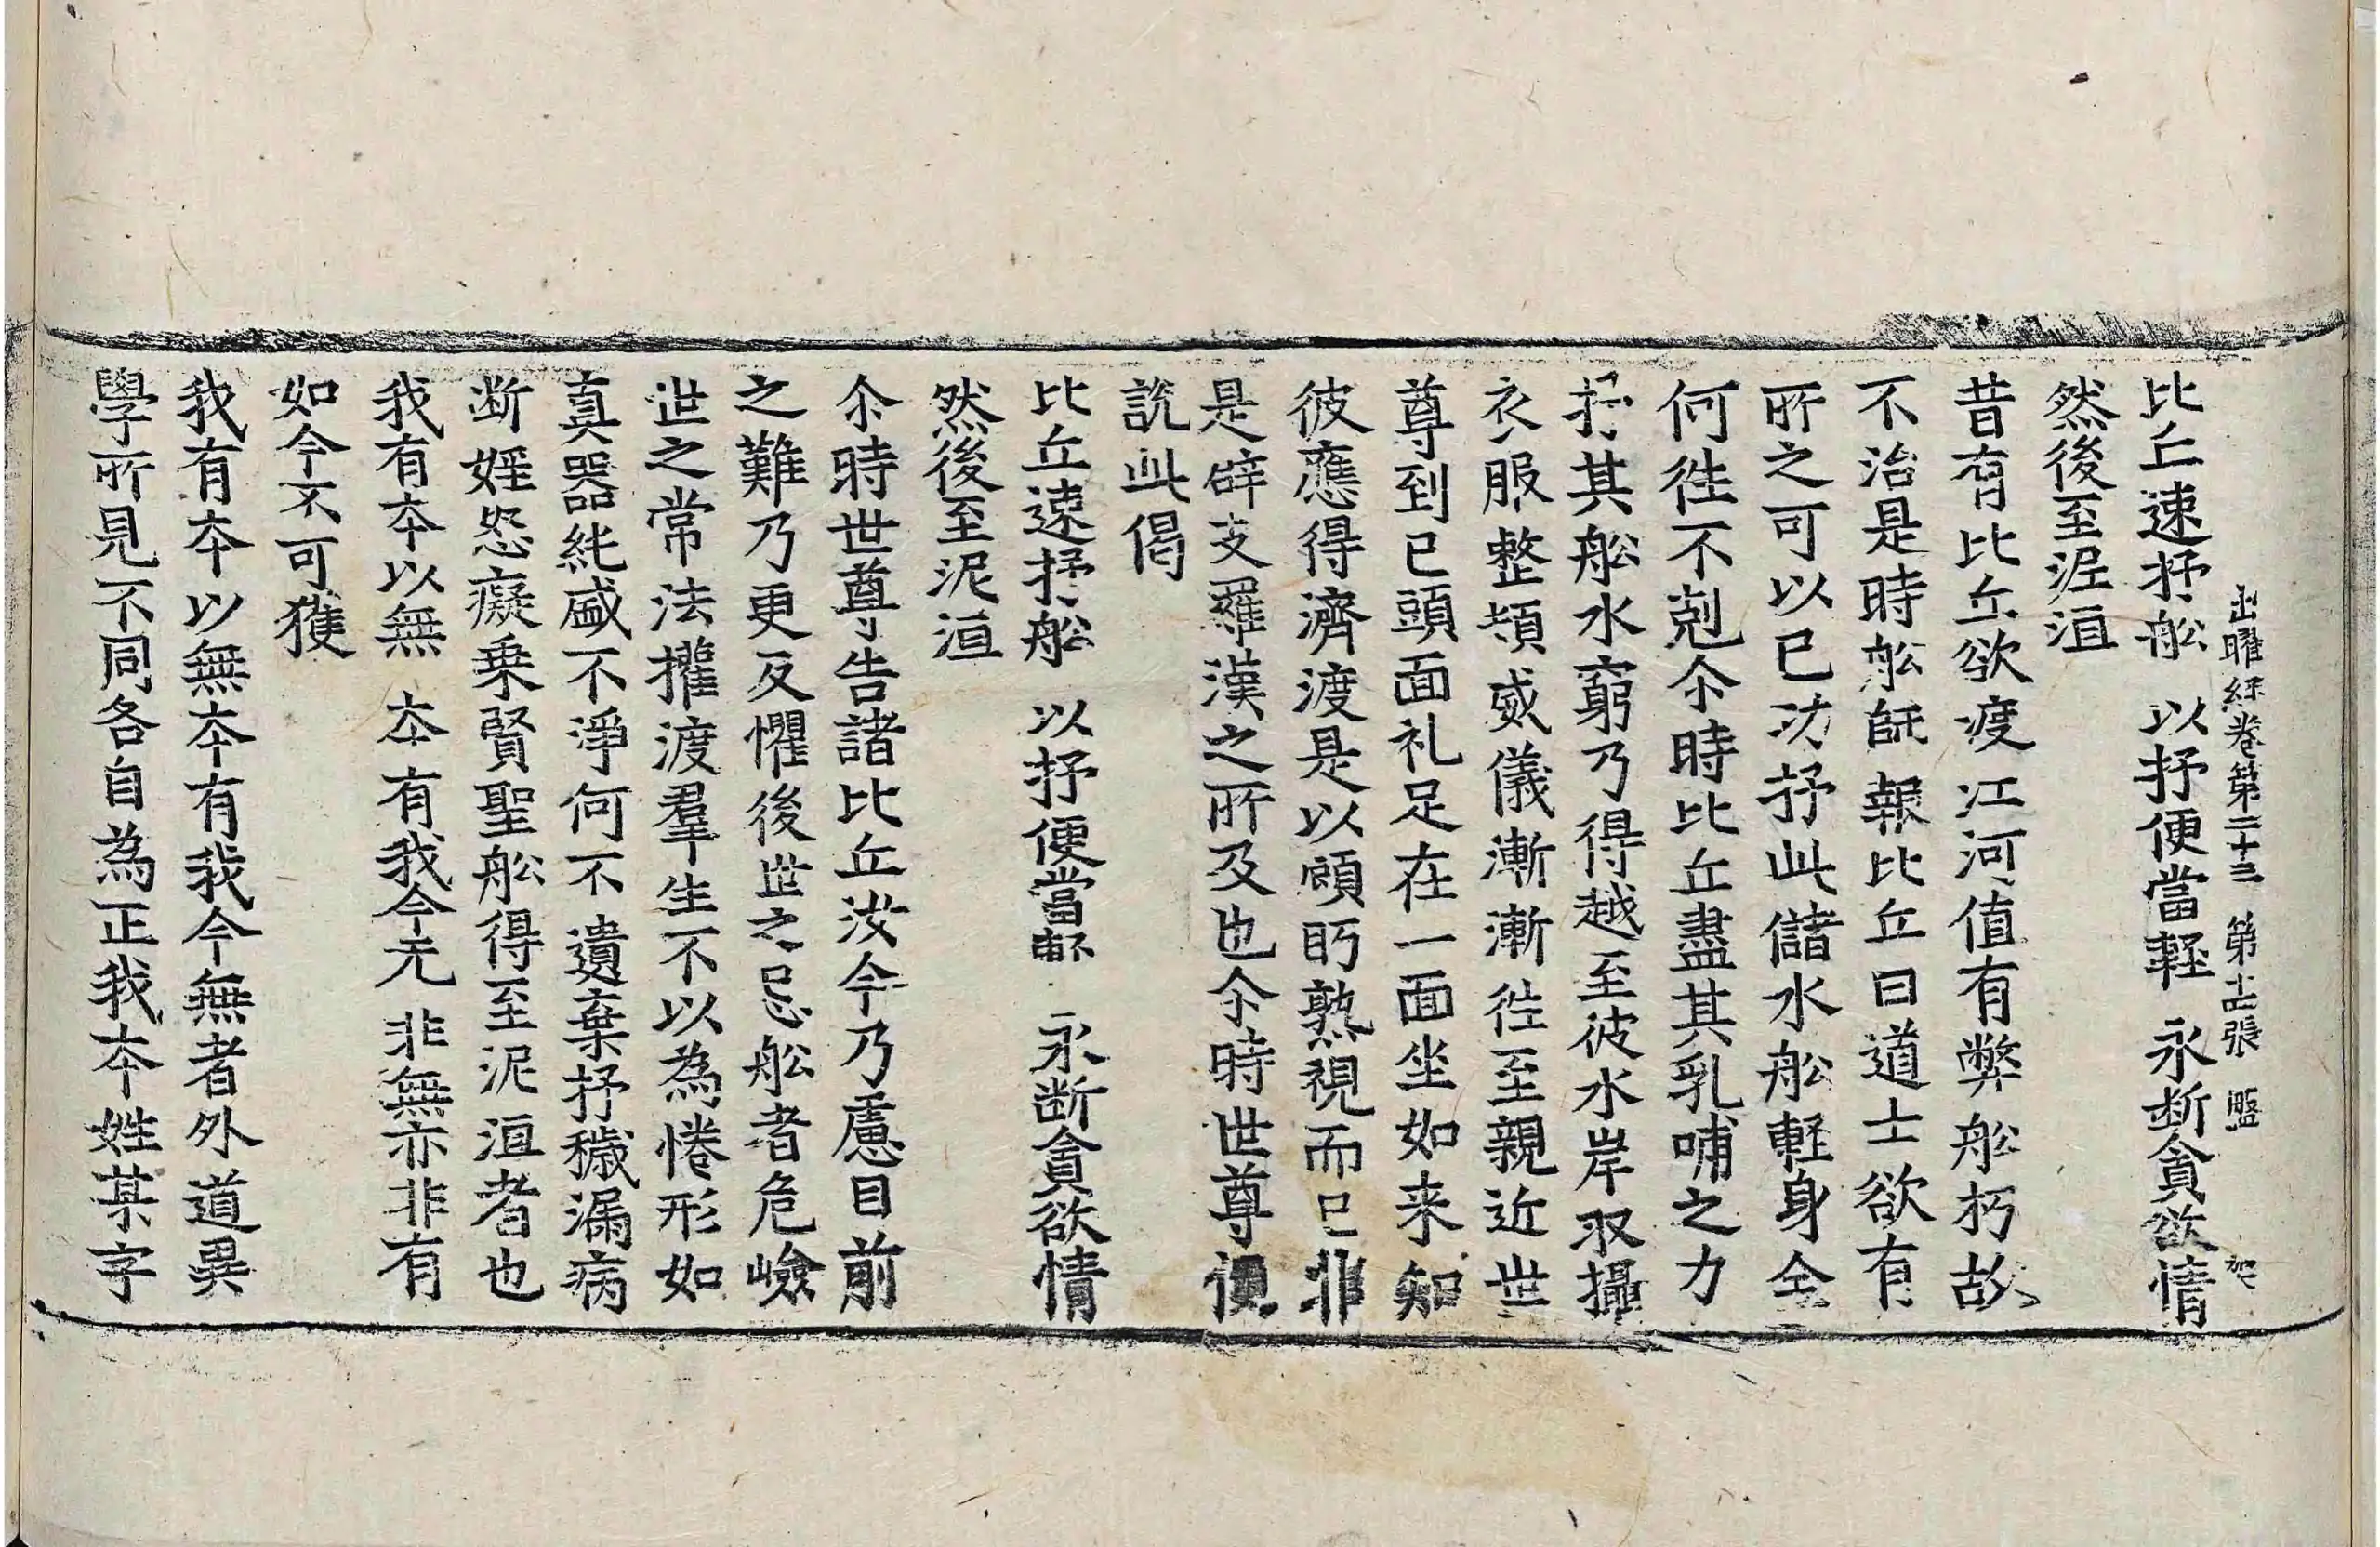 出曜経卷第二十三 第十四張 盤
比丘速抒舩 以抒便當軽 永断貪欲情
然後至泥洹
昔有比丘欲渡江河值有弊舩朽故
不治是時舩師報比丘曰道士欲有
所之可以已功抒此儲水舩軽身全
何徃不剋尒時比丘盡其乳哺之力
抒其舩水窮乃得越至彼水岸収攝
衣服整頓威儀漸漸徃至親近世
尊到已頭面礼足在一面坐如来知
彼應得濟渡是以顧眄熟視而已非
是辟支羅漢之所及也尒時世尊便
說此偈
比丘速抒舩 以抒便當軽 永断貪欲情
然後至泥洹
尒時世尊告諸比丘汝今乃慮目前
之難乃更反懼後世之忌舩者危嶮
世之常法擢渡羣生不以為惓形如
真器純盛不淨何不遺棄抒穢漏病
断婬怒癡乗賢聖舩得至泥洹者也
我有夲以無 夲有我今无 非無亦非有
如今不可獲
我有夲以無夲有我今無者外道異
學所見不同各自為正我夲姓某字